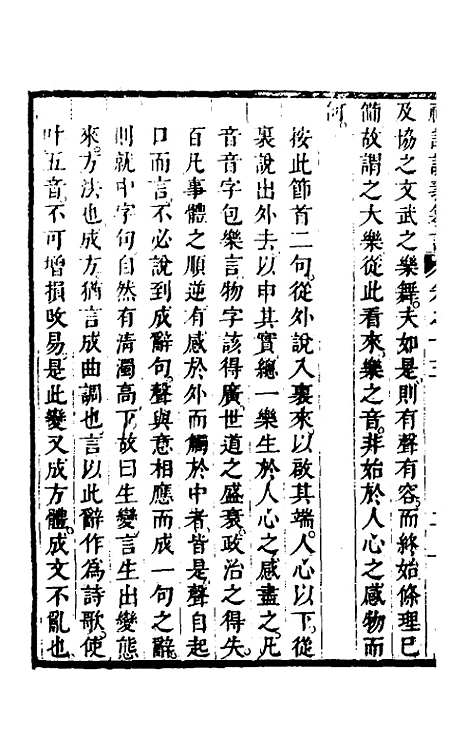 及協之文武之樂舞。夫如是。則有聲有容。而終始條理已
簡故謂之大樂從此看來。樂之音。非始於人心之感物而
何。
按此節首二句。從外說入裏來以啟其端。人心以下。從
裏說出外去以申其實總一樂生於人心之感盡之。凡
音音字包樂言。物字該得廣。世道之盛衰。政治之得失。
百凡事體之順逆有感於外而觸於中者。皆是。聲自起
口而言。不必說到成辭句。聲與意相應而成一句之辭。
則就中字句自然有清濁高下。故曰生變言生出變態
來。方法也成方。猶言成曲調也言以此辭作為詩歌。使
叶五音。不可增損改易是此變又成方體。成文不亂也